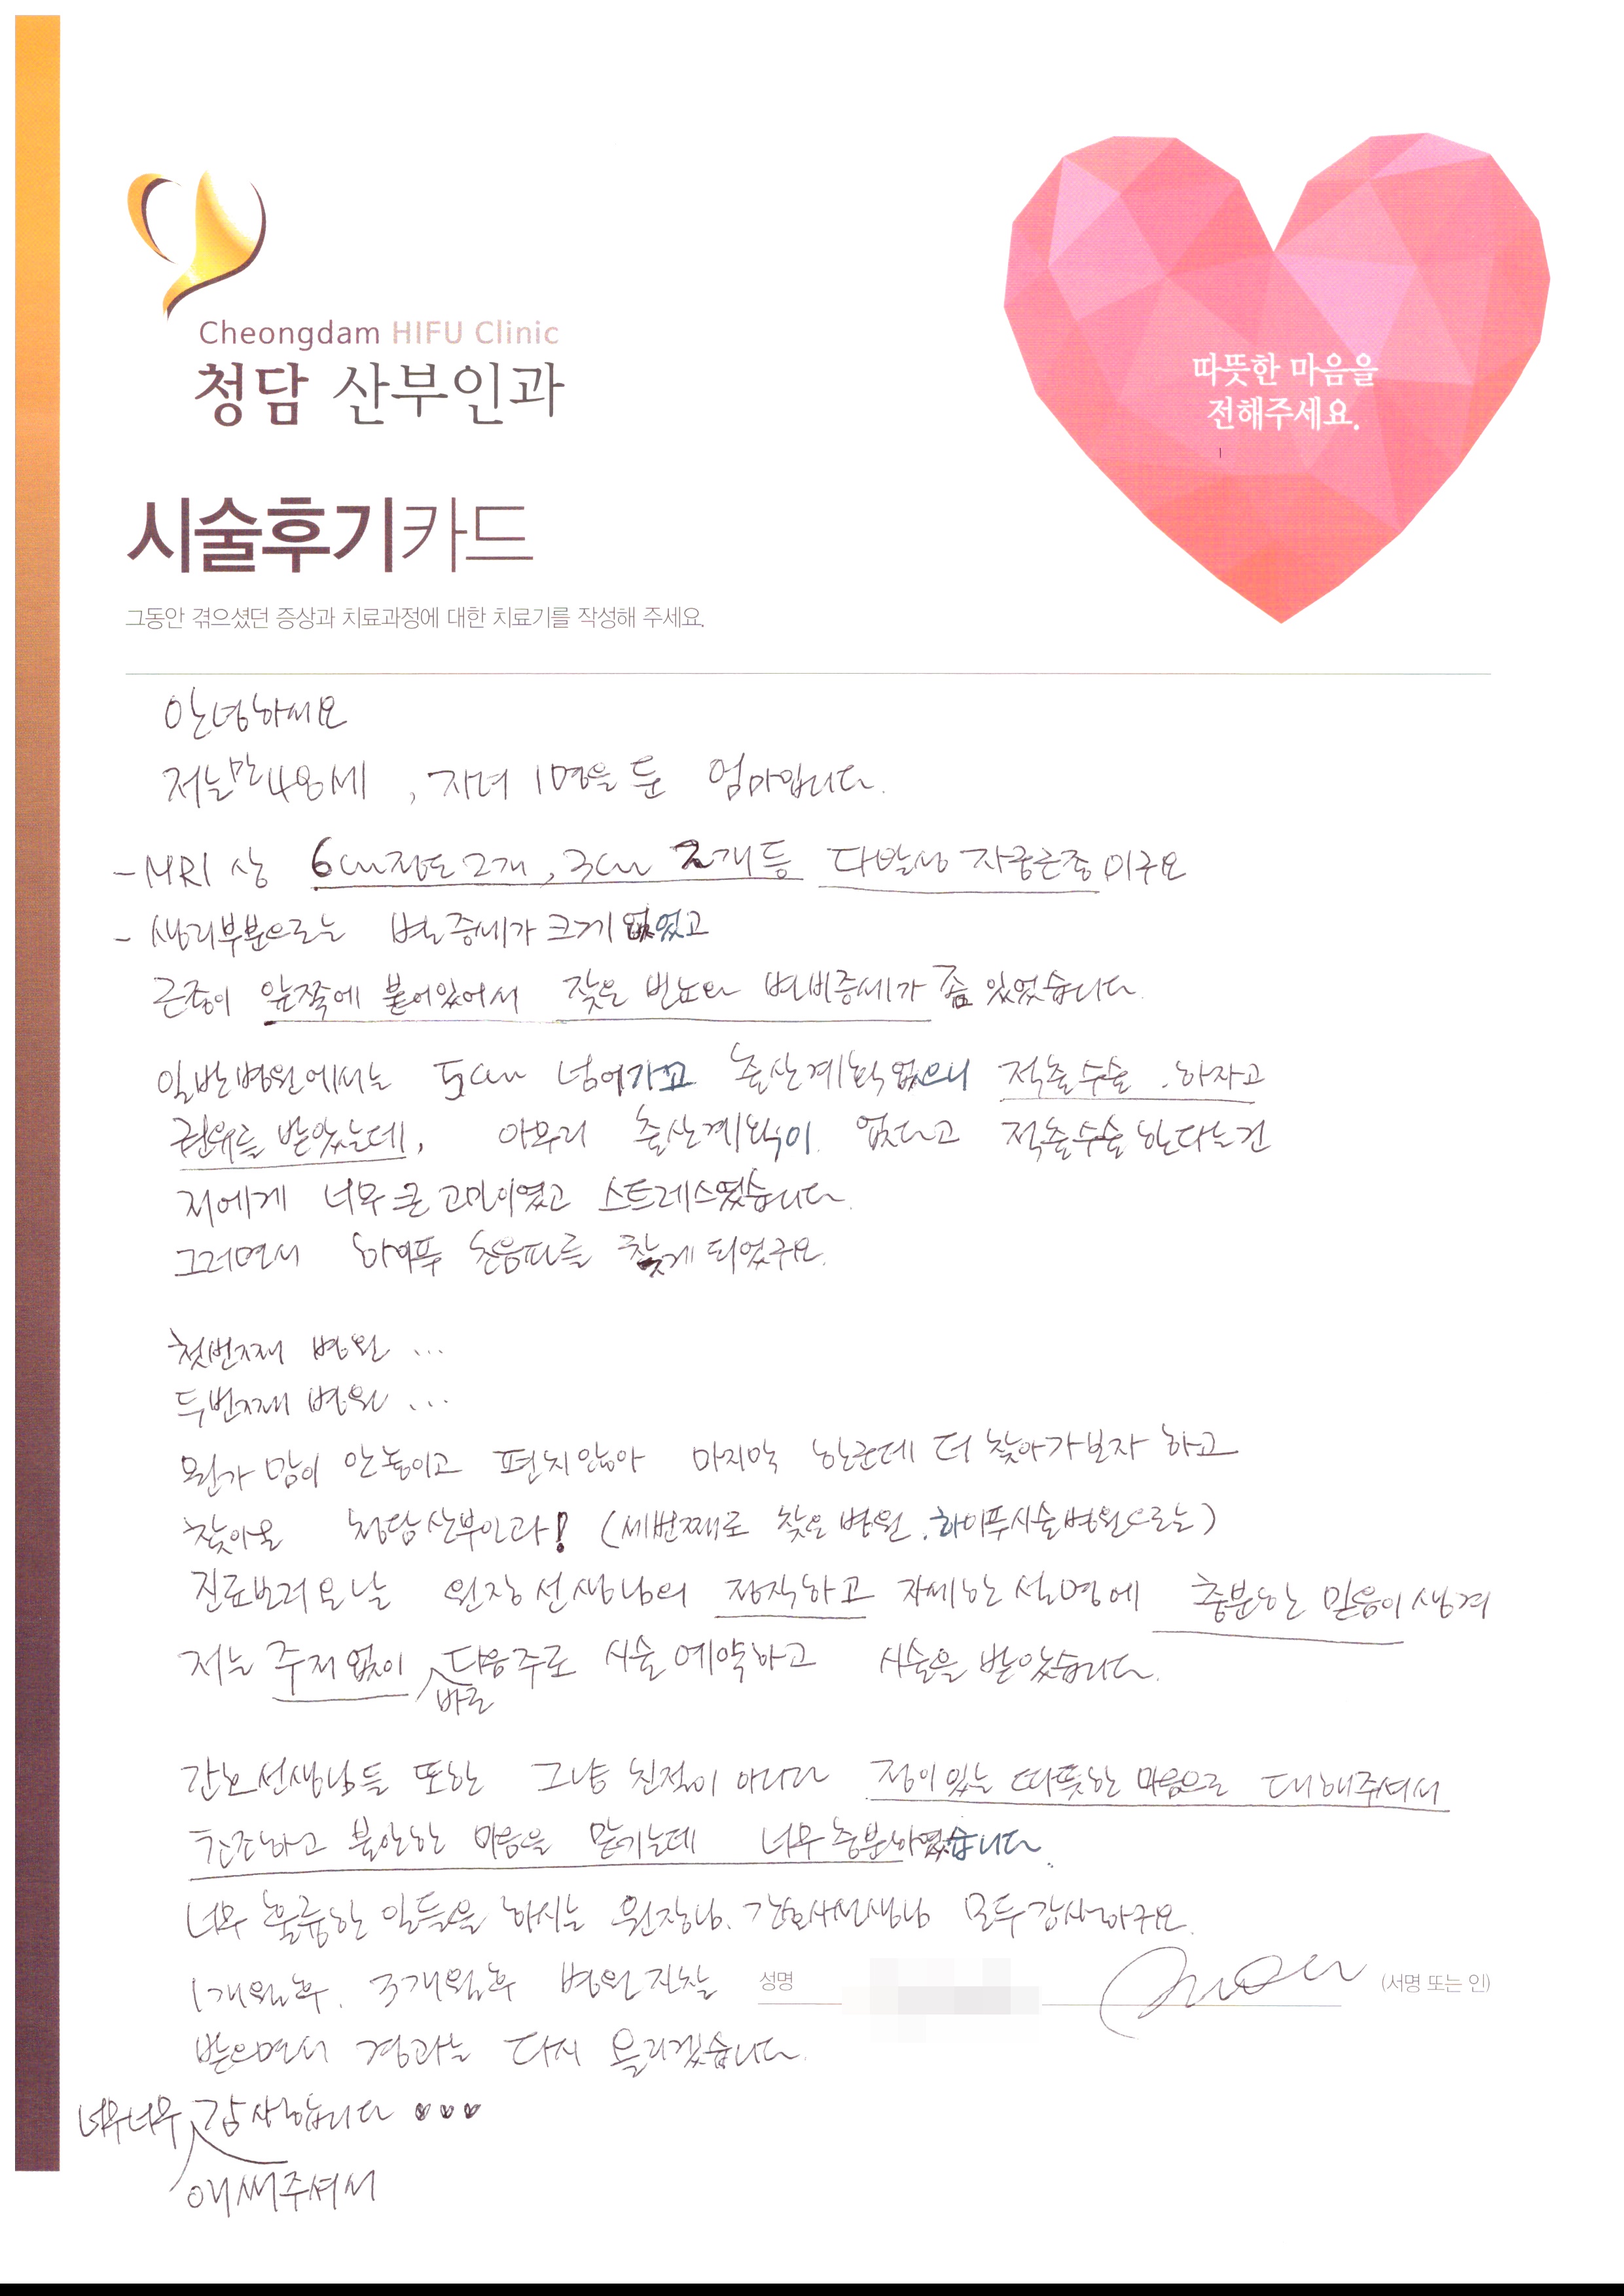 Cheongdam HIFU Clinic
청담 산부인과
따뜻한 마음을
전해주세요.
시술후기카드
그동안 겪으셨던 증상과 치료과정에 대한 치료기를 작성해 주세요.
안녕하세요
저는 만48세, 자녀 1명을 둔 엄마입니다.
- MRI 상 6cm정도 2개, 3cm 2개 등 다발성 자궁근종이구요
- 생리부분으로는 별 증세가 크게 없었고
근종이 앞쪽에 붙어있어서 잦은 빈뇨와 변비증세가 좀 있었습니다.
일반병원에서는 5cm 넘어가고 출산계획없으니 적출수술 하자고
권유를 받았는데, 아무리 출산계획이 없다고 적출수술한다는건
저에게 너무 큰 고민이였고 스트레스였습니다.
그러면서 하이푸 초음파를 찾게 되었구요.
첫번째 병원 ...
두번째 병원 ...
뭔가 맘이 안놓이고 편치않아 마지막 한군데 더 찾아가보자 하고
찾아온 청담산부인과! (세번째로 찾은 병원. 하이푸시술병원으로는)
진료보러 온 날 원장선생님의 정직하고 자세한 설명에 충분한 믿음이 생겨
저는 주저 없이 바로 다음주로 시술예약하고 시술을 받았습니다.
간호선생님들 또한 그냥 친절이 아니라 정이있는 따뜻한 마음으로 대해주셔서
긴장하고 불안한 마음을 맡기는데 너무 충분하였습니다.
너무 훌륭한 일들을 하시는 원장님, 간호사선생님 모두 감사하구요.
1개월후, 3개월후 병원 진찰
성명
(서명 또는 인)
받으면서 경과는 다시 올리겠습니다.
너무너무 애써주셔서 감사합니다 ♥♥♥